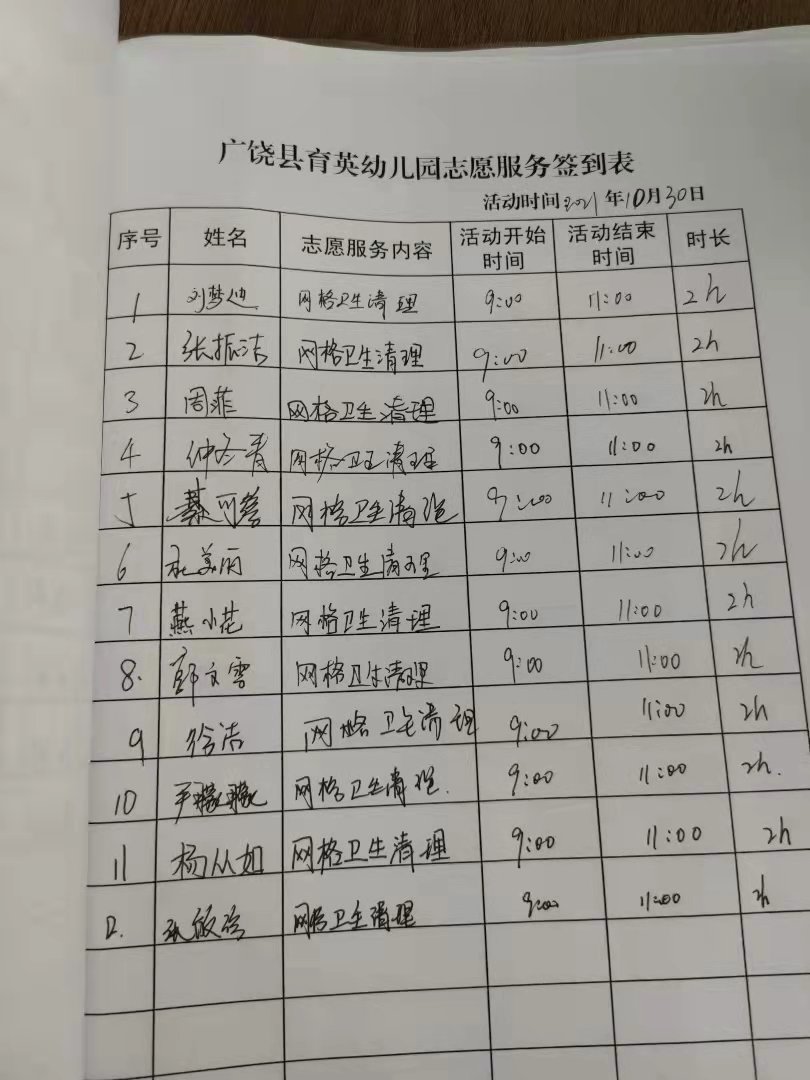 广饶县育英幼儿园志愿服务签到表
活动时间2021年10月30日
序号 姓名 志愿服务内容 活动开始时间 活动结束时间 时长
1 刘梦迪 网格卫生清理 9:00 11:00 2h
2 张振洁 网格卫生清理 9:00 11:00 2h
3 周菲 网格卫生清理 9:00 11:00 2h
4 仲冬青 网格卫生清理 9:00 11:00 2h
5 网格卫生清理 9:00 11:00 2h
6 网格卫生清理 9:00 11:00 2h
7 燕小花 网格卫生清理 9:00 11:00 2h
8. 郭文雪 网格卫生清理 9:00 11:00 2h
9 徐洁 网格卫生清理 9:00 11:00 2h
10 网格卫生清理. 9:00 11:00 2h.
11 杨从如 网格卫生清理 9:00 11:00 2h
12. 网格卫生清理 9:00 11:00 2h